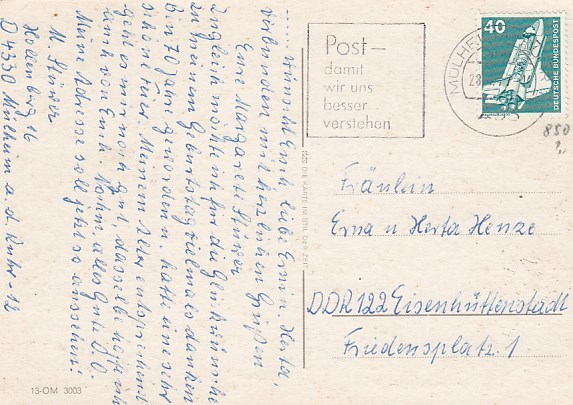 Post –
damit
wir uns
besser
verstehen
MÜLHE
40
DEUTSCHE BUNDESPOST
850
1,-
.... wünscht Euch, liebe Erna u. Herta,
verbunden mit herzlichen Grüßen
Eure Margarete Stüwer
Zugleich möchte ich für die Glückwünsche
zu meinem Geburtstag vielmals danken
Bin 70 Jahre geworden u. hatte eine sehr
schöne Feier. Meinem Alter entsprechend
geht es mir noch gut, dasselbe hoffe ich
auch von Euch. Nochm. alles Gute D.O.
Meine Adresse soll jetzt so aussehen:
M. Stüwer
D 4330 Mülheim a. d. Ruhr-12
DIE KARTE IM STIL DER ZEIT
Fräulein
Erna u. Herta Henze
DDR 122 Eisenhüttenstadt
Friedensplatz 1
13-OM 3003